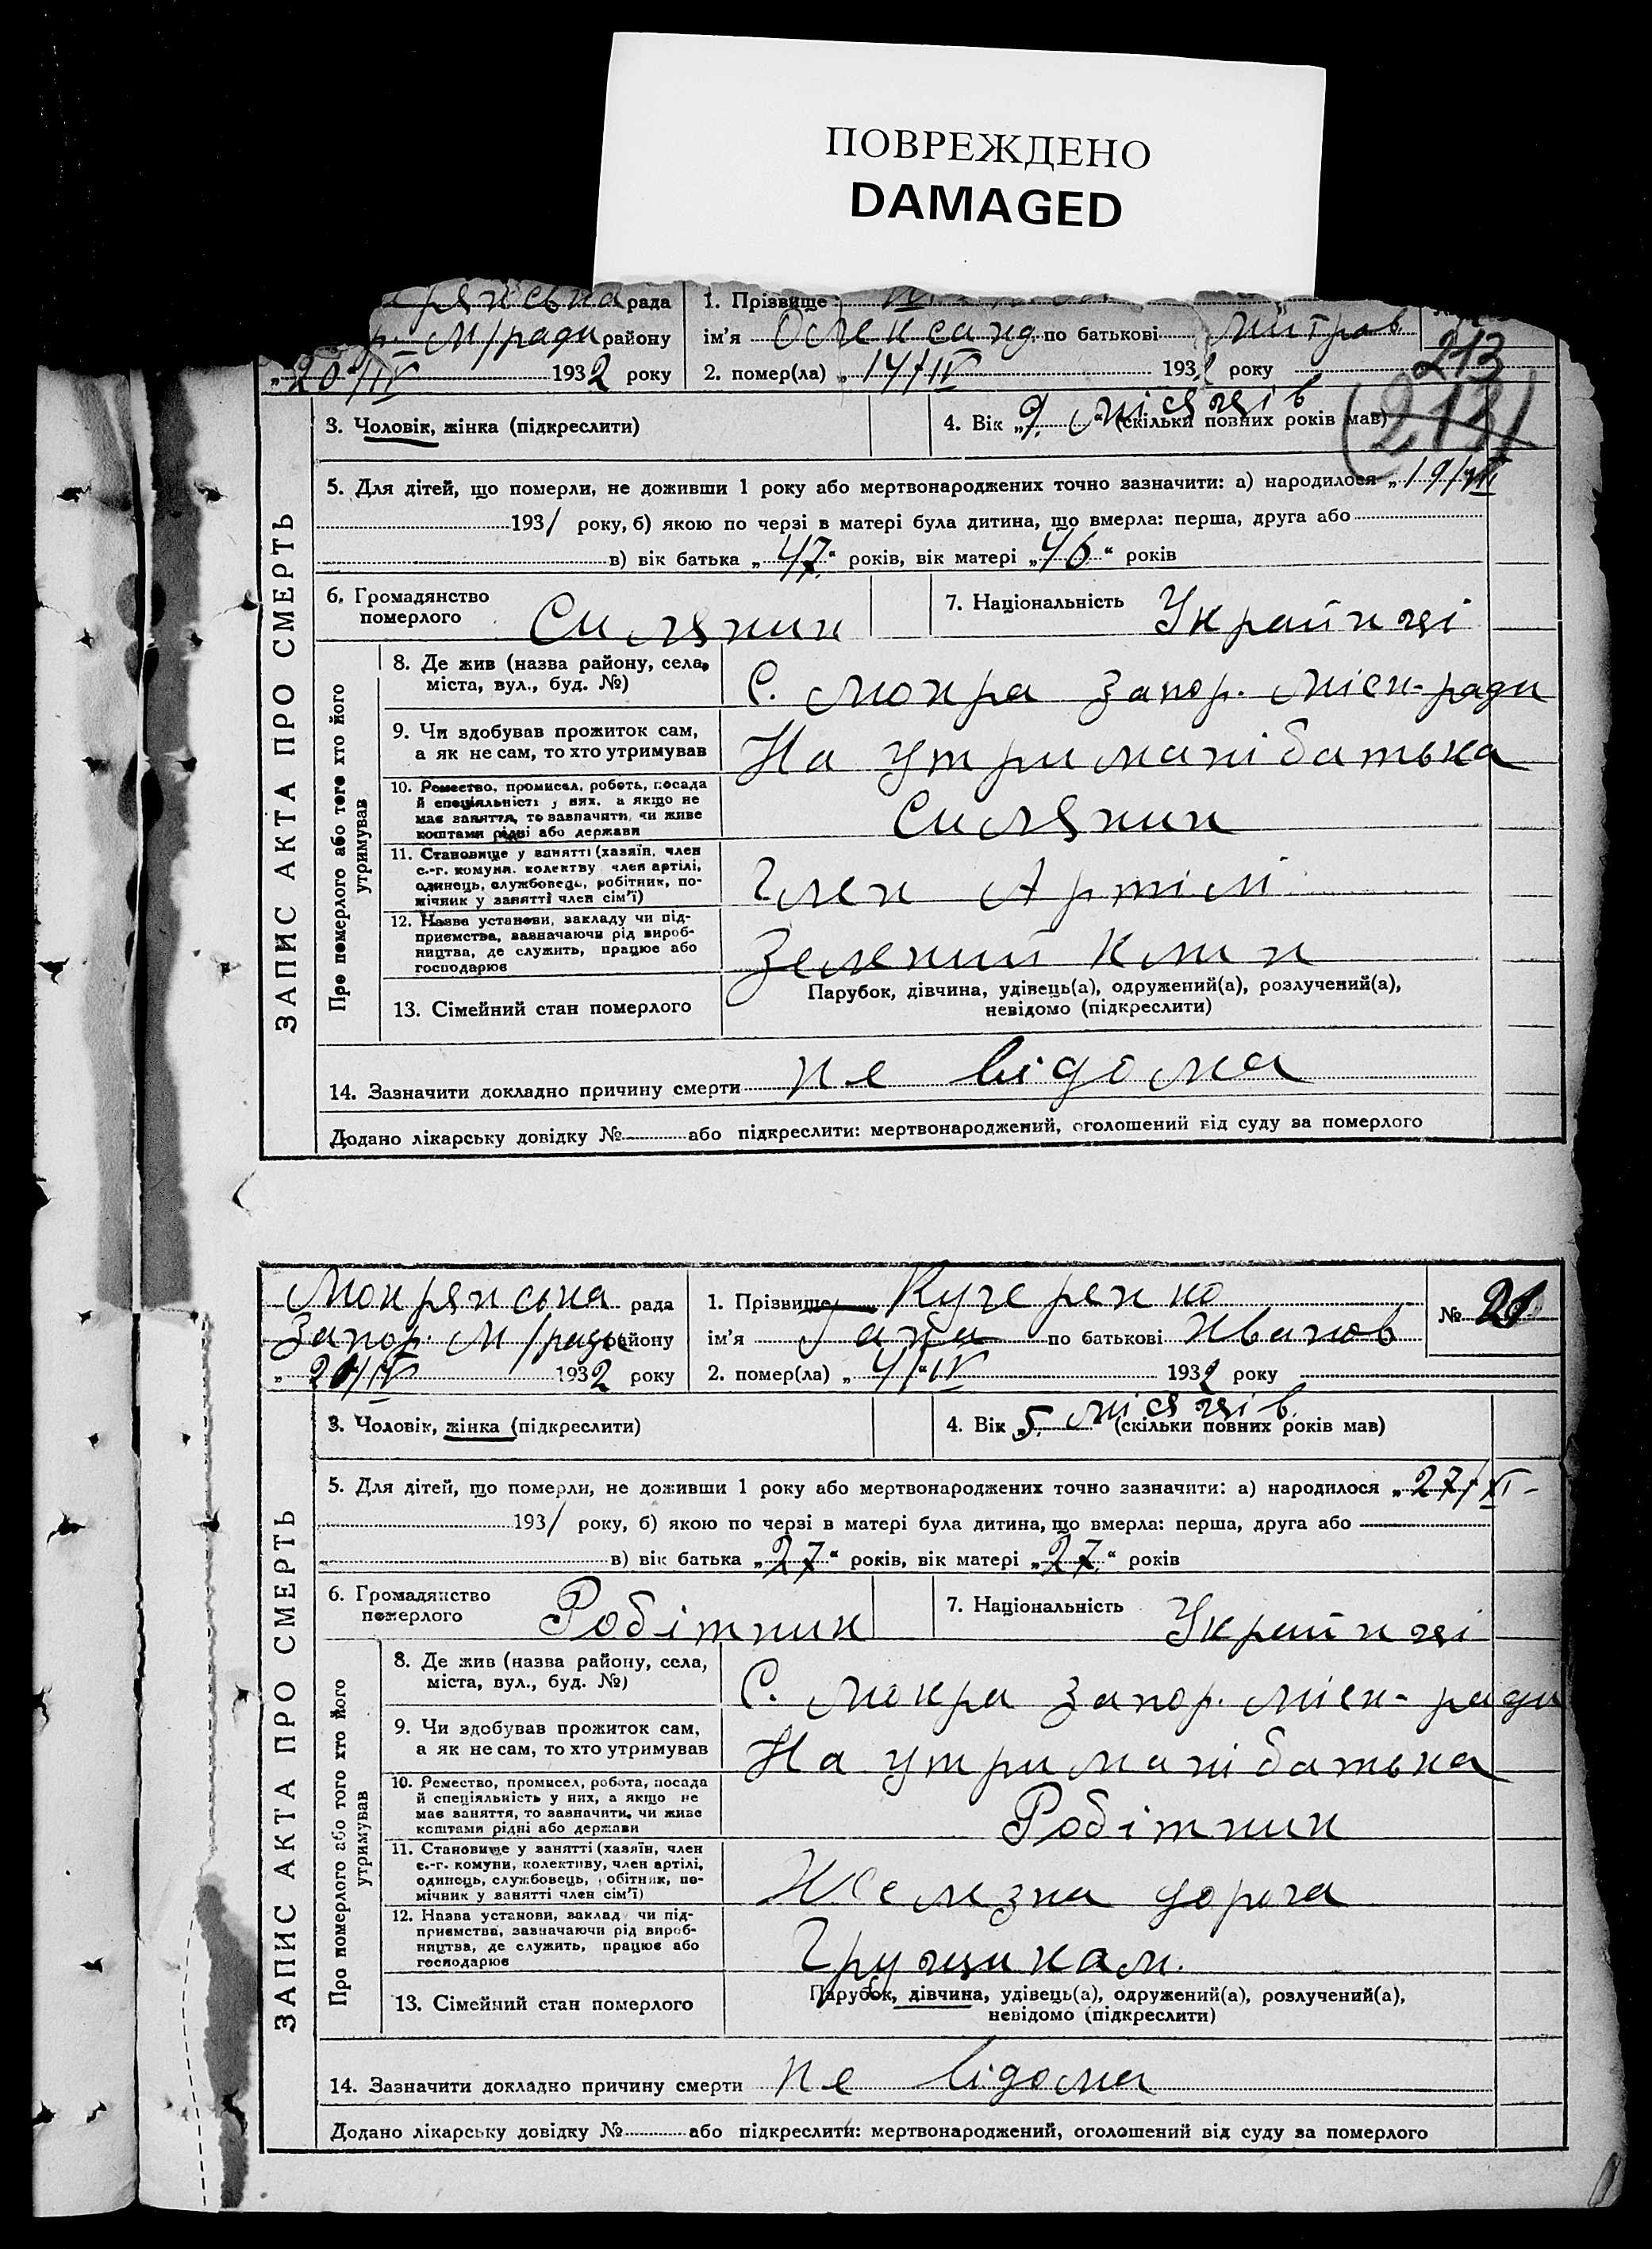 ПОВРЕЖДЕНО
DAMAGED
рада
1. Прізвище
М/ради району
ім'я Олександ. по батькові Митров
213
„20/IV 1932 року
2. помер(ла) „14/IV 1932 року
(213)
3. Чоловік, жінка (підкреслити)
4. Вік „9 місяців“ (скільки повних років мав)
ЗАПИС АКТА ПРО СМЕРТЬ
5. Для дітей, що померли, не доживши 1 року або мертвонароджених точно зазначити: а) народилося „19/VII
1931 року, б) якою по черзі в матері була дитина, що вмерла: перша, друга або
в) вік батька „47“ років, вік матері „46“ років
6. Громадянство померлого Силянин
7. Національність Українці
Про померлого або того хто його утримував
8. Де жив (назва району, села, міста, вул., буд. №)
С. Мокра Запор. міск-ради
9. Чи здобував прожиток сам, а як не сам, то хто утримував
На утримані батька
10. Ремество, промисел, робота, посада й спеціяльність у них, а якщо не має заняття, то зазначити, чи живе коштами рідні або держави
Силянин
11. Становище у занятті (хазяїн, член с.-г. комуни, колективу, член артілі, одинець, службовець, робітник, помічник у занятті член сім'ї)
Член Артілі
12. Назва установи, закладу чи підприємства, зазначаючи рід виробництва, де служить, працює або господарює
Зелений Клин
13. Сімейний стан померлого
Парубок, дівчина, удівець(а), одружений(а), розлучений(а),
невідомо (підкреслити)
14. Зазначити докладно причину смерти не відома
Додано лікарську довідку № або підкреслити: мертвонароджений, оголошений від суду за померлого
Мокрянська рада
1. Прізвище Кучеренко
№
Запор. М/ради району
ім'я Гапа по батькові Иванов
1932 року
2. помер(ла) „4/IV 1932 року
3. Чоловік, жінка (підкреслити)
4. Вік „5 місяців (скільки повних років мав)
ЗАПИС АКТА ПРО СМЕРТЬ
5. Для дітей, що померли, не доживши 1 року або мертвонароджених точно зазначити: а) народилося „27/XI-
1931 року, б) якою по черзі в матері була дитина, що вмерла: перша, друга або
в) вік батька „27“ років, вік матері „27“ років
6. Громадянство померлого Робітник
7. Національність Українці
Про померлого або того хто його утримував
8. Де жив (назва району, села, міста, вул., буд. №)
С. Мокра Запор. міск-ради
9. Чи здобував прожиток сам, а як не сам, то хто утримував
На утримані батька
10. Ремество, промисел, робота, посада й спеціяльність у них, а якщо не має заняття, то зазначити, чи живе коштами рідні або держави
Робітник
11. Становище у занятті (хазяїн, член с.-г. комуни, колективу, член артілі, одинець, службовець, робітник, помічник у занятті член сім'ї)
Железна дорога
12. Назва установи, закладу чи підприємства, зазначаючи рід виробництва, де служить, працює або господарює
Грущикам.
13. Сімейний стан померлого
Парубок, дівчина, удівець(а), одружений(а), розлучений(а),
невідомо (підкреслити)
14. Зазначити докладно причину смерти не відома
Додано лікарську довідку № або підкреслити: мертвонароджений, оголошений від суду за померлого